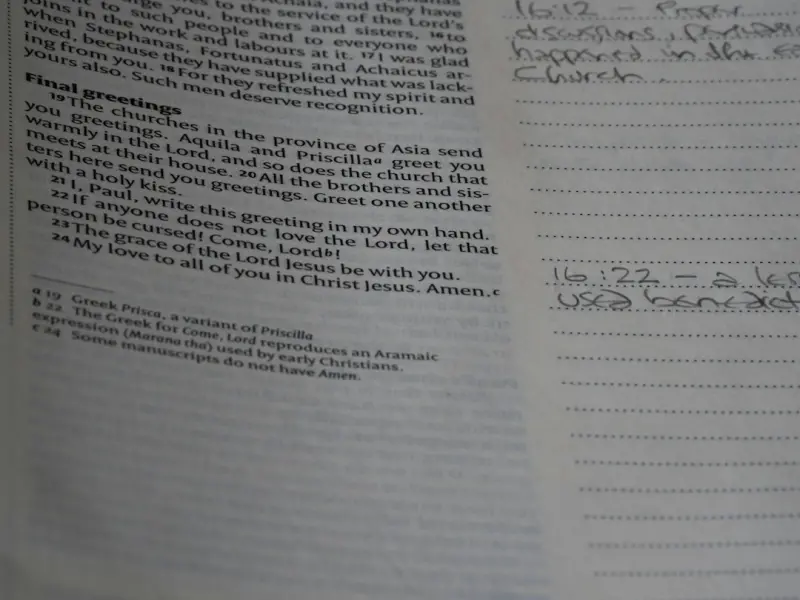 to the service of the Lord's
you, brothers and sisters, 16 to
to such people and to everyone who
joins in the work and labours at it. 17 I was glad
when Stephanas, Fortunatus and Achaicus ar-
rived, because they have supplied what was lack-
ing from you. 18 For they refreshed my spirit and
yours also. Such men deserve recognition.
Final greetings
19 The churches in the province of Asia send
you greetings. Aquila and Priscilla a greet you
warmly in the Lord, and so does the church that
meets at their house. 20 All the brothers and sis-
ters here send you greetings. Greet one another
with a holy kiss.
21 I, Paul, write this greeting in my own hand.
22 If anyone does not love the Lord, let that
person be cursed! Come, Lord b!
23 The grace of the Lord Jesus be with you.
24 My love to all of you in Christ Jesus. Amen. c
a 19 Greek Prisca, a variant of Priscilla
b 22 The Greek for Come, Lord reproduces an Aramaic
expression (Marana tha) used by early Christians.
c 24 Some manuscripts do not have Amen.
16:12 - Proper
discussions,
happened in the
Church.
16:22 - a
used benedict